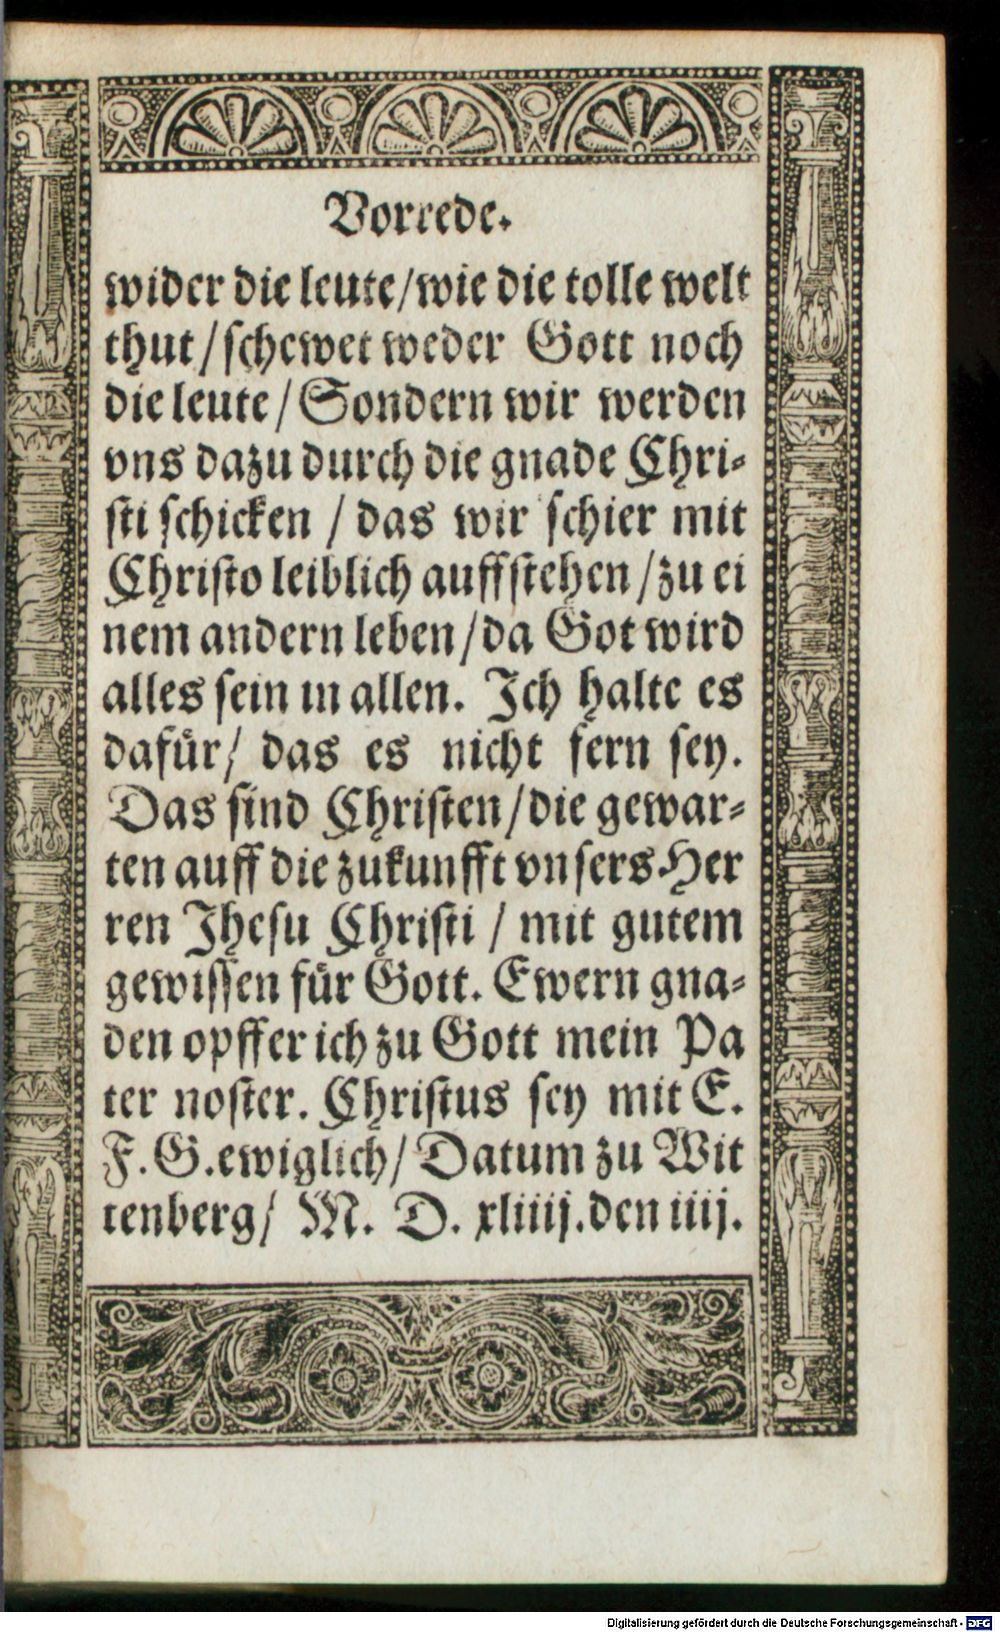 Vorrede.
wider die leute/wie die tolle welt
thut/schewet weder Gott noch
die leute/Sondern wir werden
vns dazu durch die gnade Chri-
sti schicken / das wir schier mit
Christo leiblich auffstehen/zu ei
nem andern leben/da Got wird
alles sein in allen. Jch halte es
dafür/ das es nicht fern sey.
Das sind Christen/die gewar-
ten auff die zukunfft vnsers Her
ren Jhesu Christi / mit gutem
gewissen für Gott. Ewern gna-
den opffer ich zu Gott mein Pa
ter noster. Christus sey mit E.
F. G. ewiglich/ Datum zu Wit
tenberg/ M. D. xliiij. den iiij.
Digitalisierung gefördert durch die Deutsche Forschungsgemeinschaft - DFG